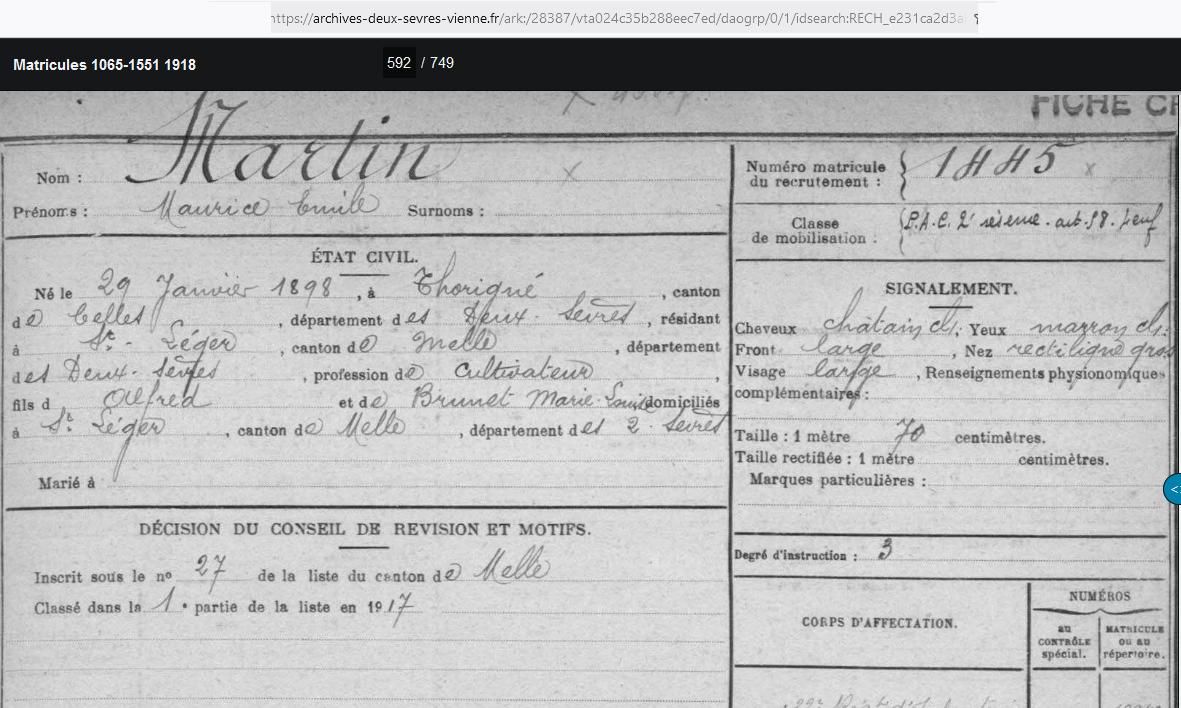 https://archives-deux-sevres-vienne.fr/ark:/28387/vta024c35b288eec7ed/daogrp/0/1/idsearch:RECH_e231ca2d3a
Matricules 1065-1551 1918 592 / 749
FICHE
Nom : Martin
Prénoms : Maurice Emile Surnoms :
ÉTAT CIVIL.
Né le 29 Janvier 1898, à Thorigné, canton
de Celles, département des Deux-Sèvres, résidant
à St-Léger, canton de Melle, département
des Deux-Sèvres, profession de Cultivateur,
fils d Alfred et de Brunet Marie-Louise domiciliés
à St Léger, canton de Melle, département des 2-Sèvres
Marié à
DÉCISION DU CONSEIL DE REVISION ET MOTIFS.
Inscrit sous le no 27 de la liste du canton de Melle
Classé dans la 1e partie de la liste en 1917
Numéro matricule
du recrutement : 1445
Classe
de mobilisation : P.A.C. 2e réserve. art. 58.
SIGNALEMENT.
Cheveux châtain cl. Yeux marron cl.
Front large, Nez rectiligne gros
Visage large, Renseignements physionomiques
complémentaires :
Taille : 1 mètre 70 centimètres.
Taille rectifiée : 1 mètre centimètres.
Marques particulières :
Degré d'instruction : 3
CORPS D'AFFECTATION.
NUMÉROS
au CONTRÔLE spécial.
MATRICULE ou au répertoire.